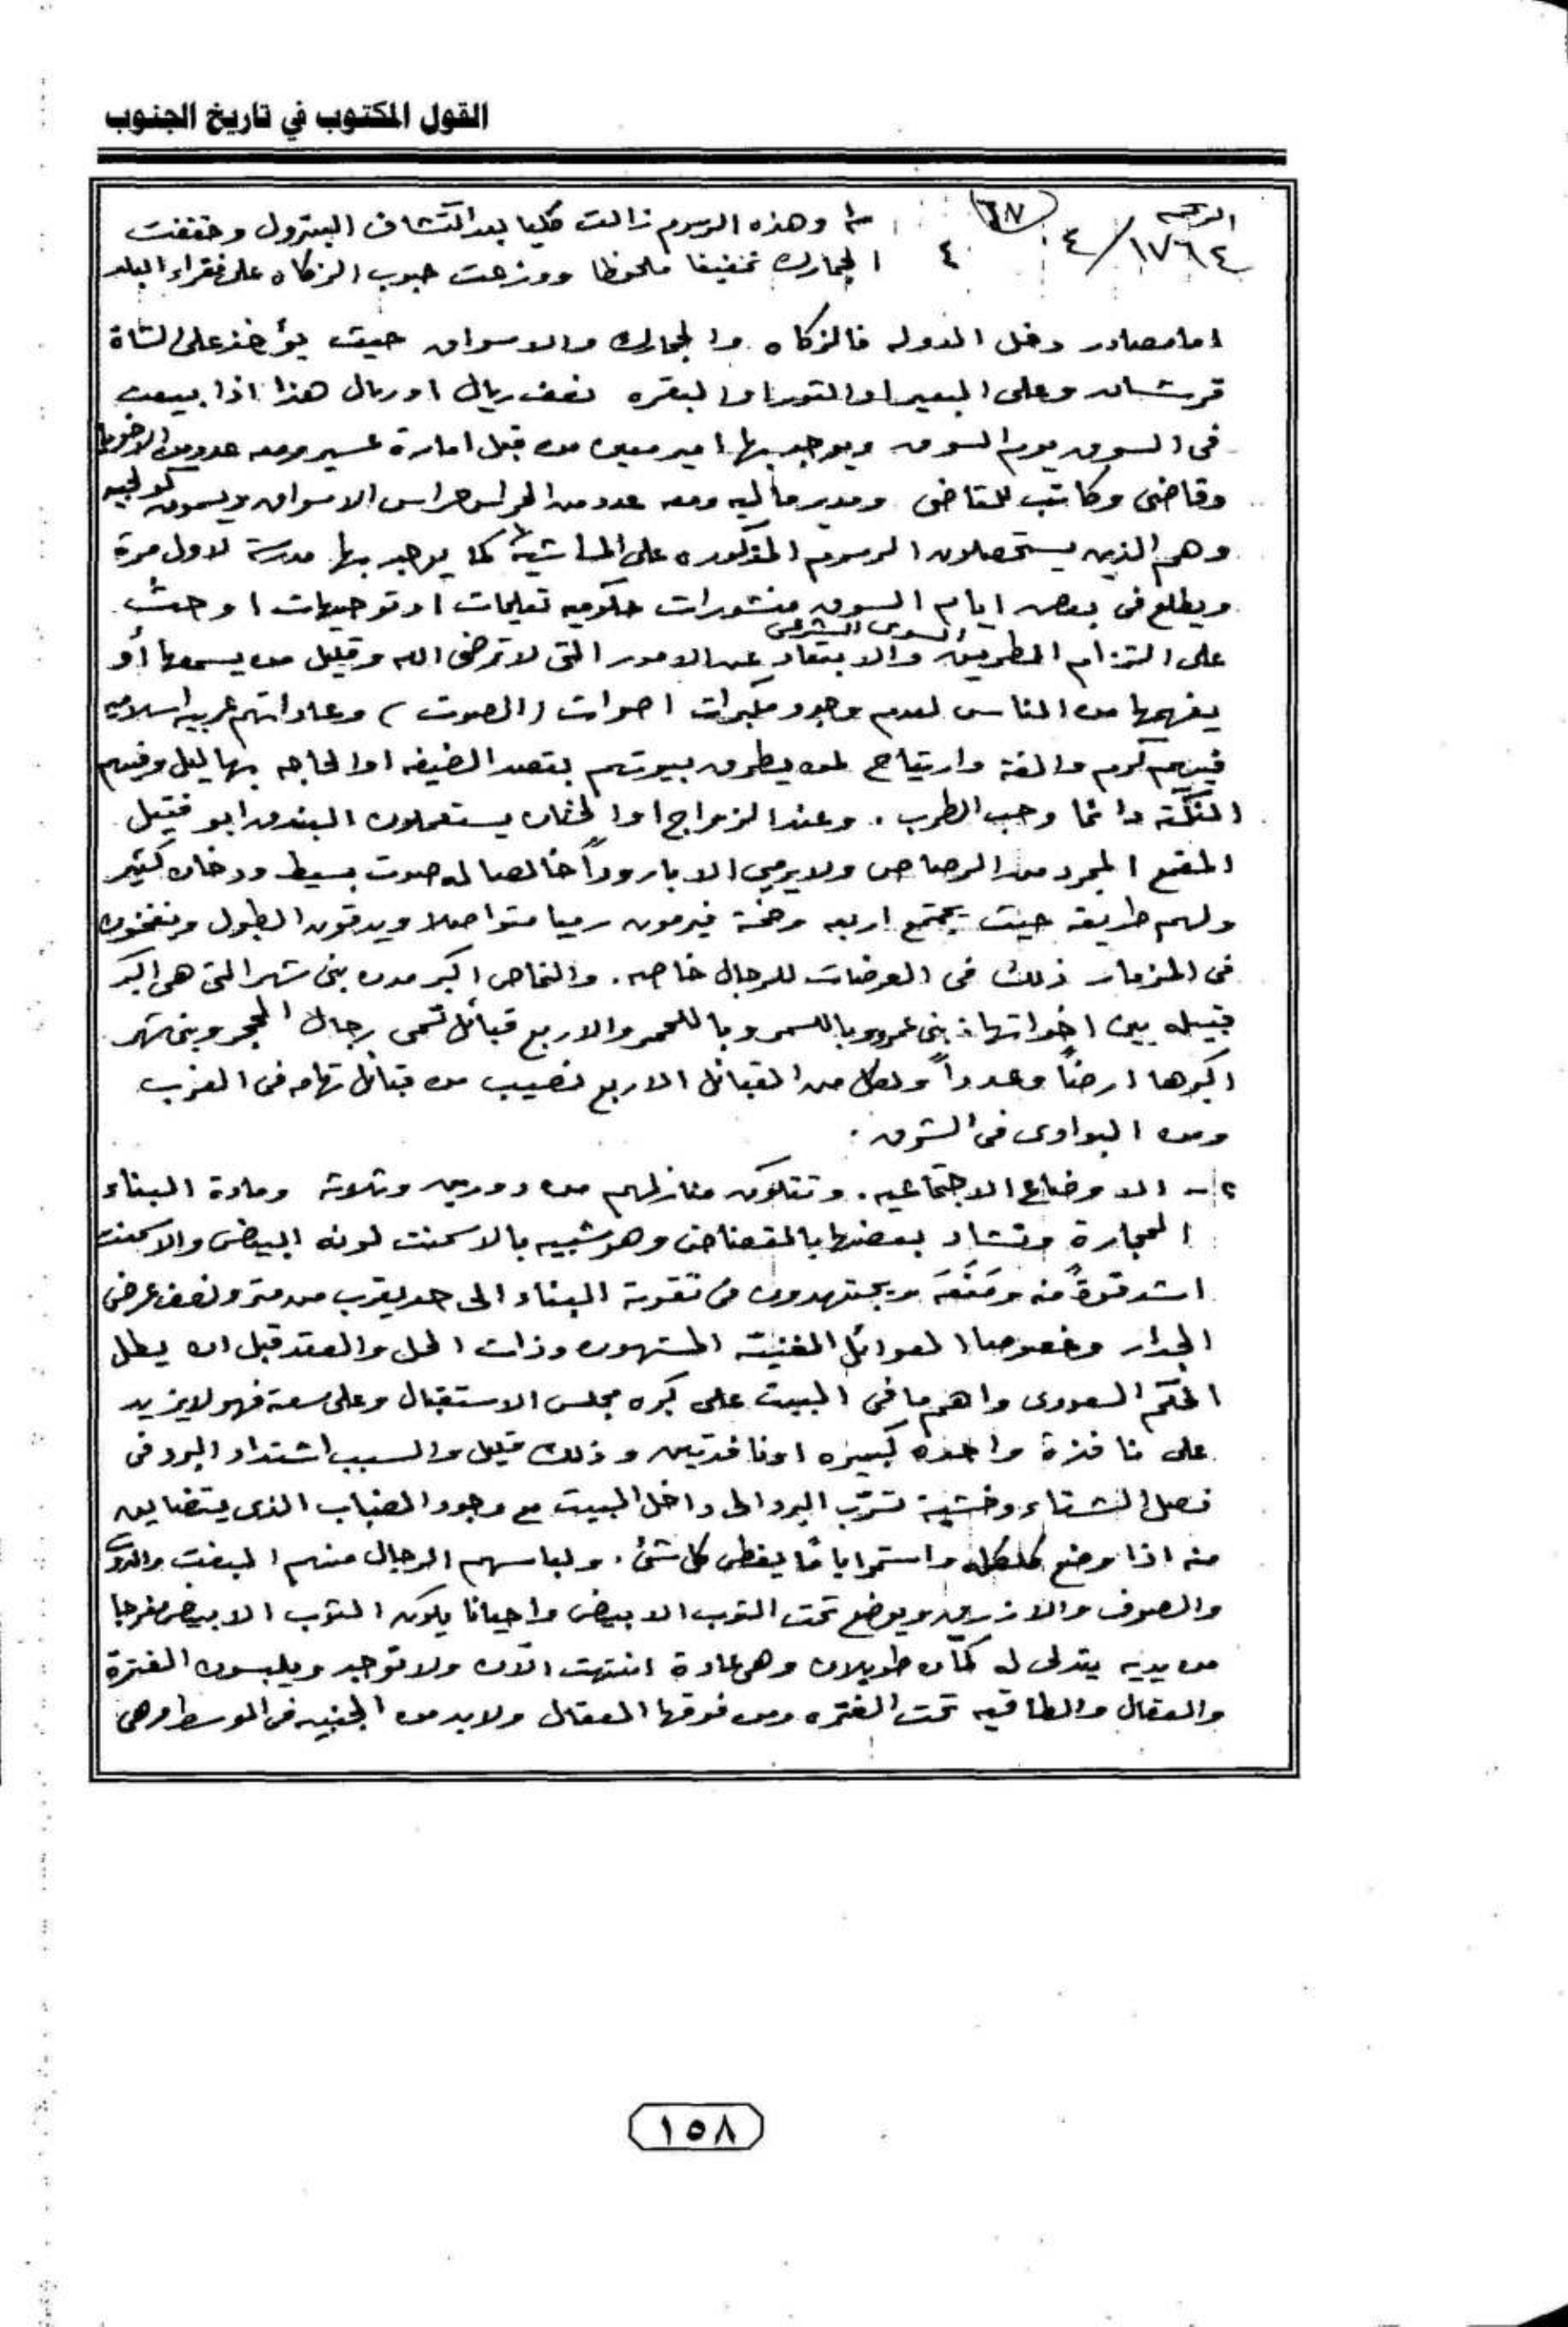 القول المكتوب في تاريخ الجنوب
الرقم
١٧٦٤ / ٤
٦٧
٤
وهذه الرسوم زالت كليا بعد اكتشاف البترول وخففت
الجمارك تخفيفا ملحوظا ووزعت حبوب الزكاه على فقراء البلد
اما مصادر دخل الدوله فالزكاه والجمارك والاسواق حيث يؤخذ على الشاة
قرشان وعلى البعير او الثور او البقره نصف ريال او ريال هذا اذا بيعت
فى السوق يوم السوق ويوجد بها امير معين من قبل امارة عسير ومعه عدد من الاخويا
وقاضى وكاتب للقاضى ومدير ماليه ومعه عدد من الحراس حراس الاسواق ويسمون كولجيه
وهم الذين يستحصلون الرسوم المذكوره على الماشية كما يوجد بها مدرسة لاول مرة
ويطلع فى بعض ايام السوق منشورات حكوميه تعليمات او توجيهات او حث
على التزام الطريق السوى الشرعى والابتعاد عن الامور التى لا ترضى الله وقليل من يسمعها أو
يفهمها من الناس لعدم وجود مكبرات اصوات (الصوت) وعاداتهم عربيه اسلاميه
فيهم كرم والفة وارتياح لمن يطرق بيوتهم بقصد الضيفه او الحاجه بها ليل وفيهم
النكتة دائما وحب الطرب . وعند الزواج او الختان يستعملون البندق ابو فتيل
المقمع المجرد من الرصاص ولا يرمى الا باروداً خالصا له صوت بسيط ودخان كثير
ولهم طريقه حيث يجتمع اربعه وخمسة فيرمون رميا متواصلا ويدقون الطبول وينفخون
فى المزمار ذلك فى العرضات للرجال خاصه . والنماص اكبر مدن بنى شهر التى هى اكبر
قبيله بين اخواتها : بنى عمرو وباللسمر وباللحمر والاربع قبائل تسمى رجال الحجر وبنى شهر
اكبرها ارضاً وعدداً ولكل من القبائل الاربع نصيب من قبائل تهامه فى الغرب
ومن البوادى فى الشرق .
٢ - الاوضاع الاجتماعيه . وتتكون منازلهم من دورين وثلاثة ومادة البناء
الحجارة وتشاد بعضها بالقضاض وهو شبيه بالاسمنت لونه ابيض والاسمنت
اشد قوةً منه ومَنَعَه ويجتهدون فى تقوية البناء الى حد يقرب من متر ونصف عرض
الجدار وخصوصا العوائل الغنية المشهوره وذات الحل والعقد قبل ان يطل
الحكم السعودى واهم ما فى البيت على كبره مجلس الاستقبال وعلى سعته فهو لا يزيد
على نافذة واحده كبيره او نافذتين وذلك قليل والسبب اشتداد البرد فى
فصل الشتاء وخشية تسرّب البرد الى داخل البيت مع وجود الضباب الذى يتضايق
منه اذا وضع كلكله واستمر اياماً يغطى كل شئ . ولباسهم الرجال منهم البفت والدوت
والصوف والازرين ويوضع تحت الثوب الابيض واحيانا يكون الثوب الابيض مفرجا
من يديه يتدلى له كمان طويلان وهى عادة انتهت الآن ولا توجد ويلبسون الغترة
والعقال والطاقيه تحت الغتره ومن فوقها العقال ولا بد من الجنبيه فى الوسط وهى
١٥٨